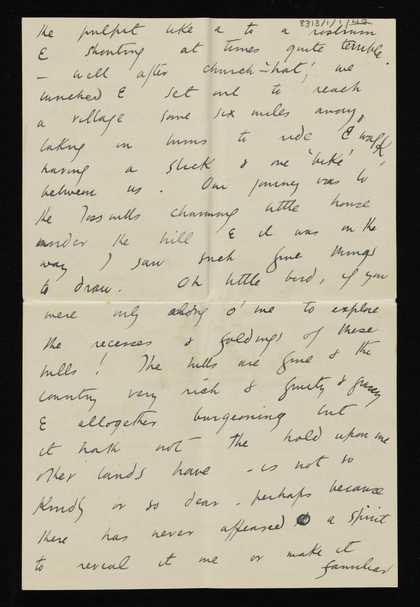 8313/1/1/
the pulpit like a to a rostrum
& shouting at times quite terrible.
– well after church – that, we
lunched & set out to reach
a village some six miles away,
taking in turns to ride & walk,
having a stick & one 'bike'
between us. Our journey was to
the charming little house
under the hill & it was on the
way I saw such fine things
to draw. Oh little bird, if you
were only along o' me to explore
the recesses & foldings of these
hills! The hills are fine & the
country very rich & fruity & 
& altogether burgeoning but
it hath not the hold upon me
other lands have – is not so
kindly or so dear – perhaps because
there has never appeared a spirit
to reveal it me or make it
familiar